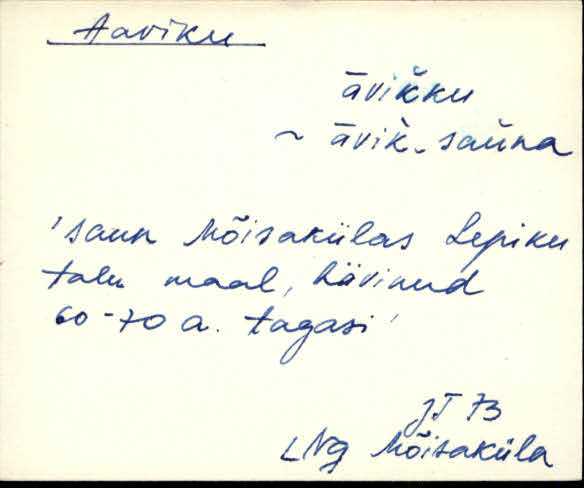 Aaviku
āvik̆ku
~ āvik̆-saŭna
'saun Mõisakülas Lepiku
talu maal, hävinud
60-70 a. tagasi'
JT 73
LNg Mõisaküla